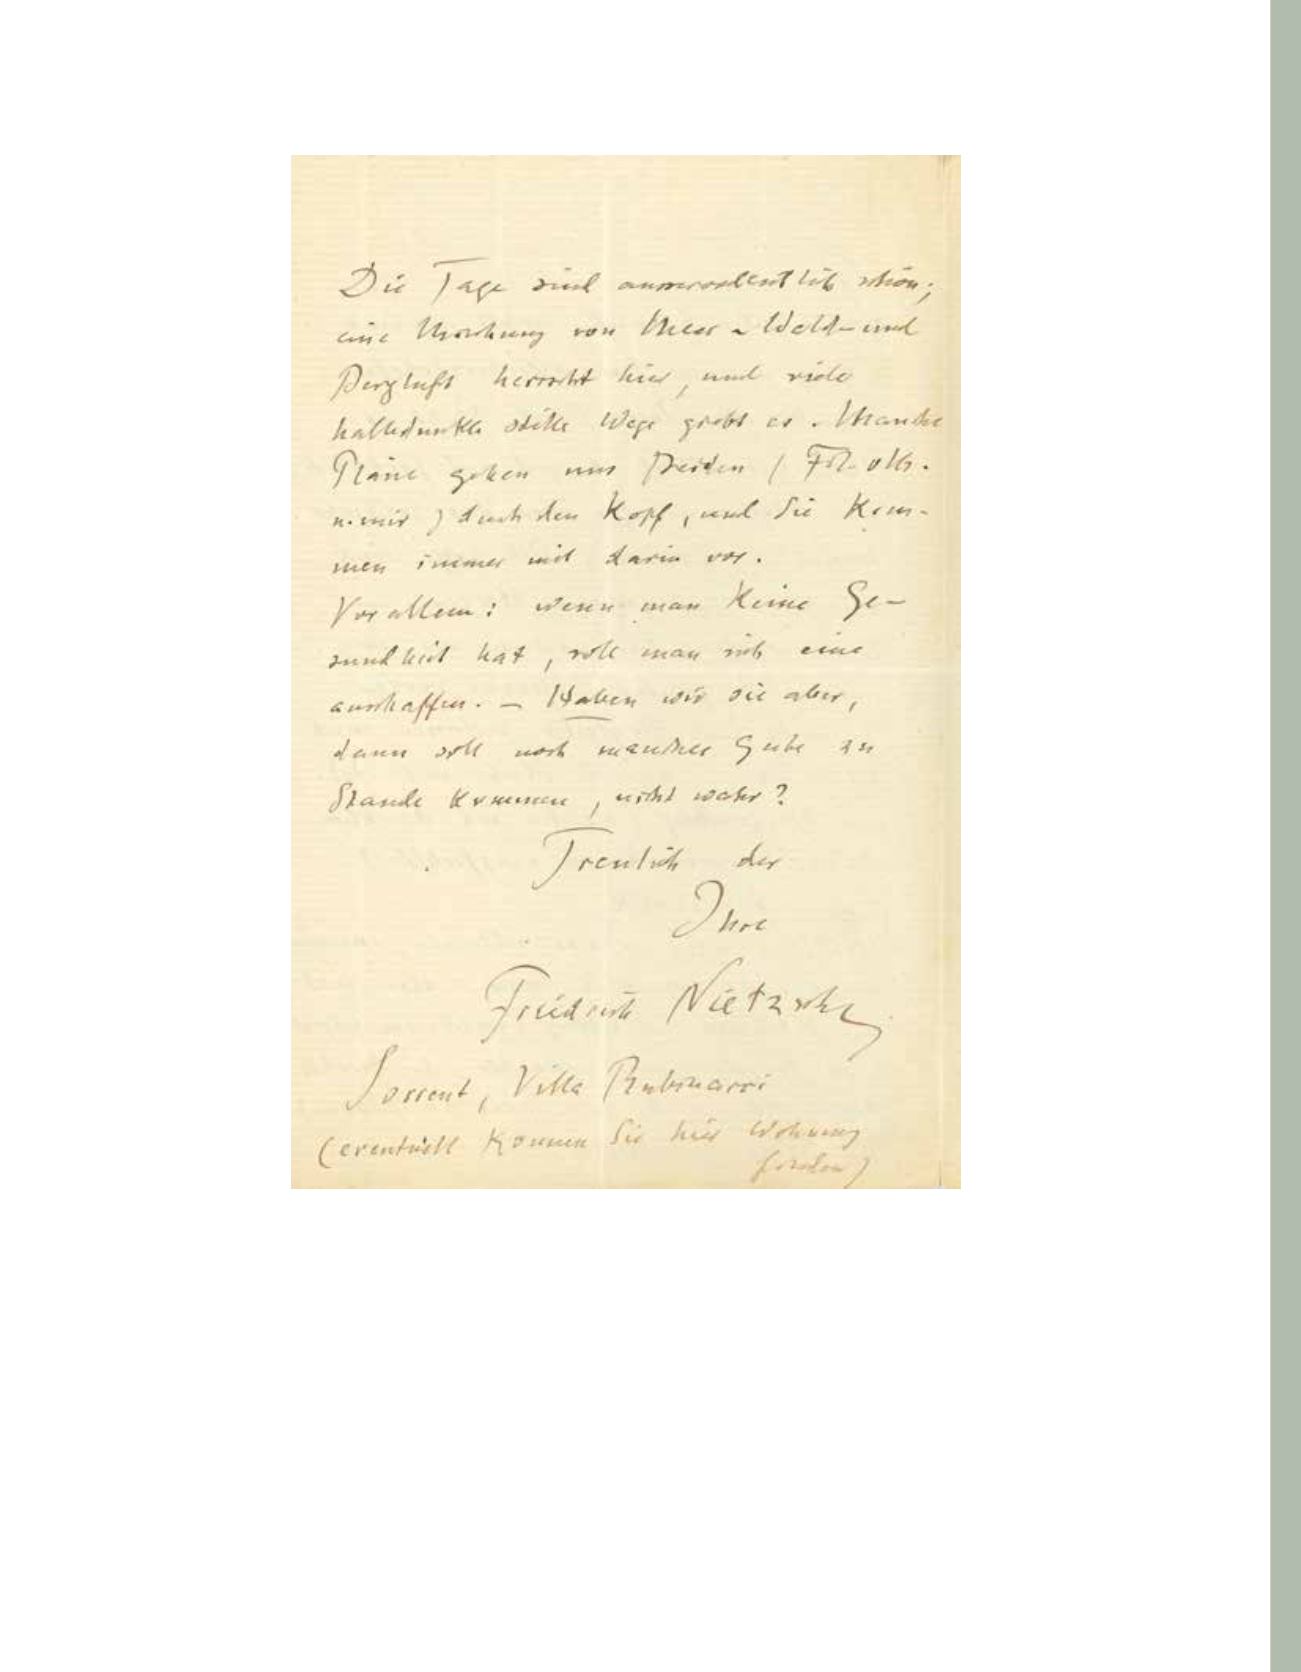 Die Tage sind ausserordentlich schön;
eine Mischung von Meer- Wald- und
Bergluft herrscht hier, und viele
halbdunkle stille Wege giebt es. Manche
Pläne gehen uns Beiden (Frl. v M.
u. mir) durch den Kopf, und Sie kom-
men immer mit darin vor.
Vor allem: wenn man keine Ge-
sundheit hat, soll man sich eine
anschaffen. – Haben wir sie aber,
dann soll noch manches Gute zu
Stande kommen, nicht wahr?
Treulich der
Ihre
Friedrich Nietzsche
Sorrent, Villa Rubinacci
(eventuell können Sie hier Wohnung
finden)